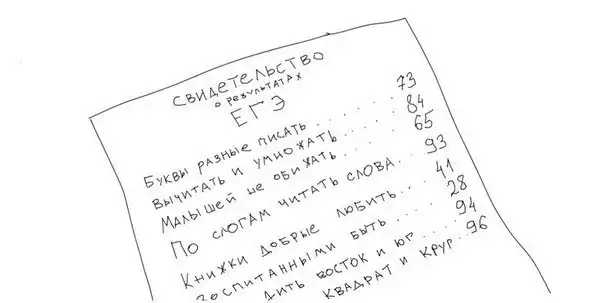 СВИДЕТЕЛЬСТВО
О РЕЗУЛЬТАТАХ
ЕГЭ
БУКВЫ РАЗНЫЕ ПИСАТЬ ........ 73
ВЫЧИТАТЬ И УМНОЖАТЬ ..... 84
МАЛЫШЕЙ НЕ ОБИЖАТЬ ....... 65
ПО СЛОГАМ ЧИТАТЬ СЛОВА .. 93
КНИЖКИ ДОБРЫЕ ЛЮБИТЬ ... 41
ВОСПИТАННЫМИ БЫТЬ .... 28
ДИТЬ ВОСТОК И ЮГ .... 94
КВАДРАТ И КРУГ .. 96